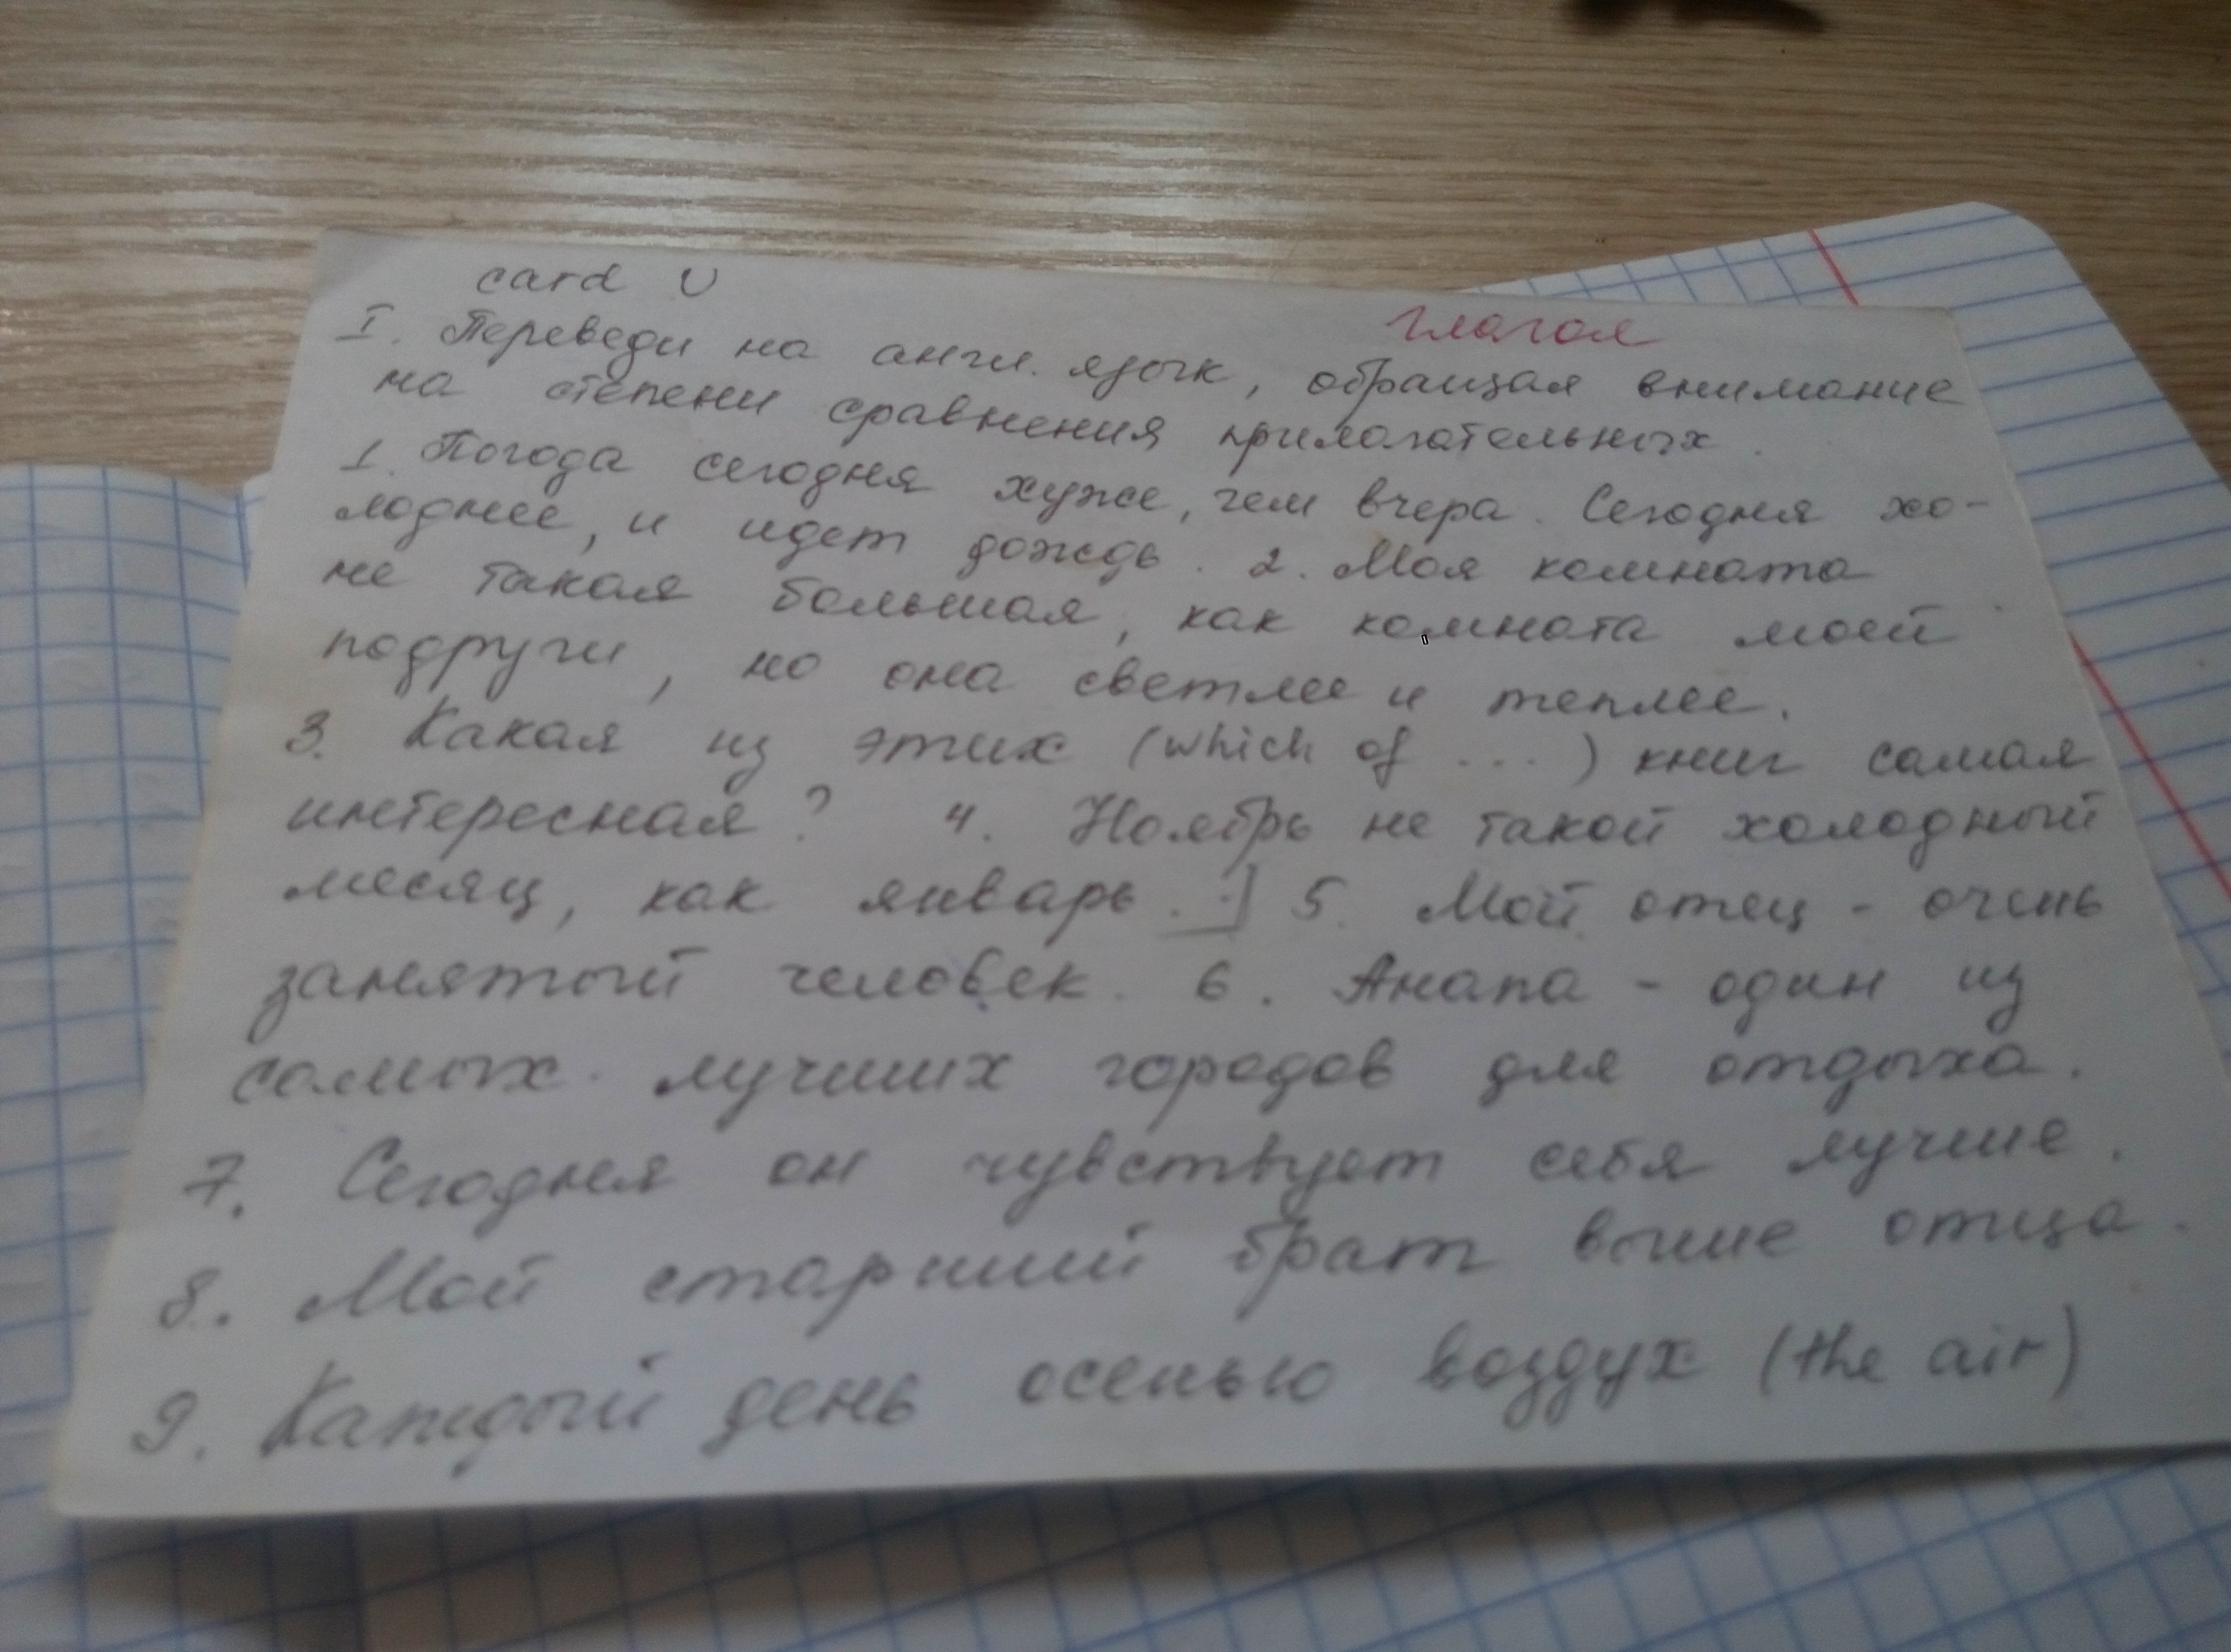 card U
глагол
I. Переведи на англ. язык, обращая внимание
на степени сравнения прилагательных.
1. Погода сегодня хуже, чем вчера. Сегодня хо-
лоднее, и идет дождь. 2. Моя комната
не такая большая, как комната моей
подруги, но она светлее и теплее.
3. Какая из этих (which of ...) книг самая
интересная? 4. Ноябрь не такой холодный
месяц, как январь. 5. Мой отец - очень
занятый человек. 6. Анапа - один из
самых лучших городов для отдыха.
7. Сегодня он чувствует себя лучше.
8. Мой старший брат выше отца.
9. Каждый день осенью воздух (the air)